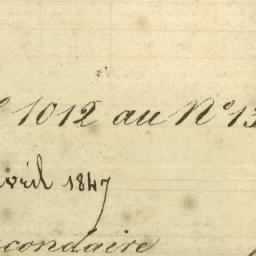 1012 au N° 13
avril 1847
condaire